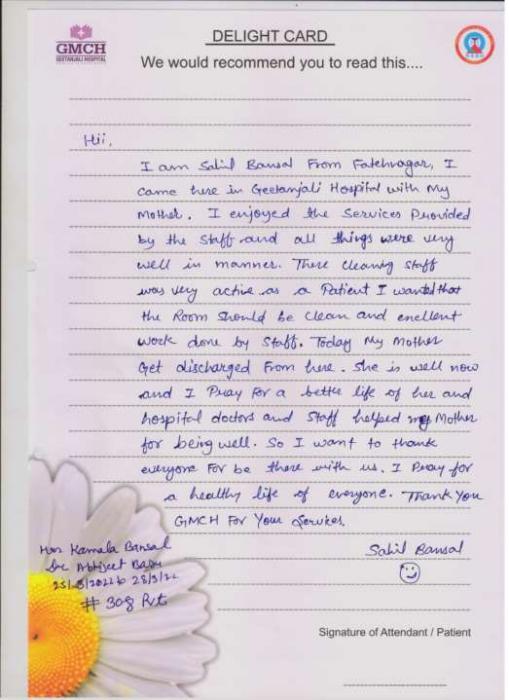 GMCH
GEETANJALI HOSPITAL
DELIGHT CARD
We would recommend you to read this....
Hii,
I am Sahil Bansal From Fatehnagar, I
came here in Geetanjali Hospital with My
Mother. I enjoyed the Services Provided
by the staff and all things were very
well in manner. There cleaning staff
was very active as a Patient I wanted that
the Room should be clean and enellent
work done by staff. Today My Mother
Get discharged From here. She is well now
and I Pray For a better life of her and
hospital doctors and staff helped my Mother
for being well. So I want to thank
everyone For be there with us. I Pray for
a healthy life of everyone. Thank You
GMCH For Your Services.
Sahil Bansal
Mrs Kamala Bansal
Dr. Abhijeet Basu
25/8/2022 to 28/8/22
# 308 Pvt
Signature of Attendant / Patient